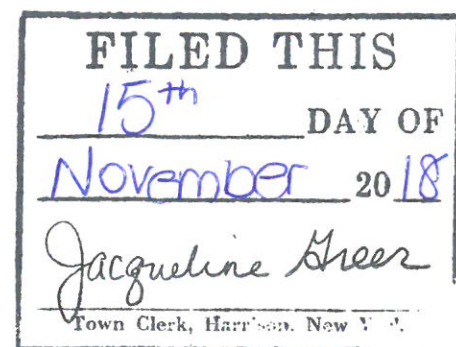 FILED THIS
15th DAY OF
November 2018
Jacqueline Greer
Town Clerk, Harrison, New